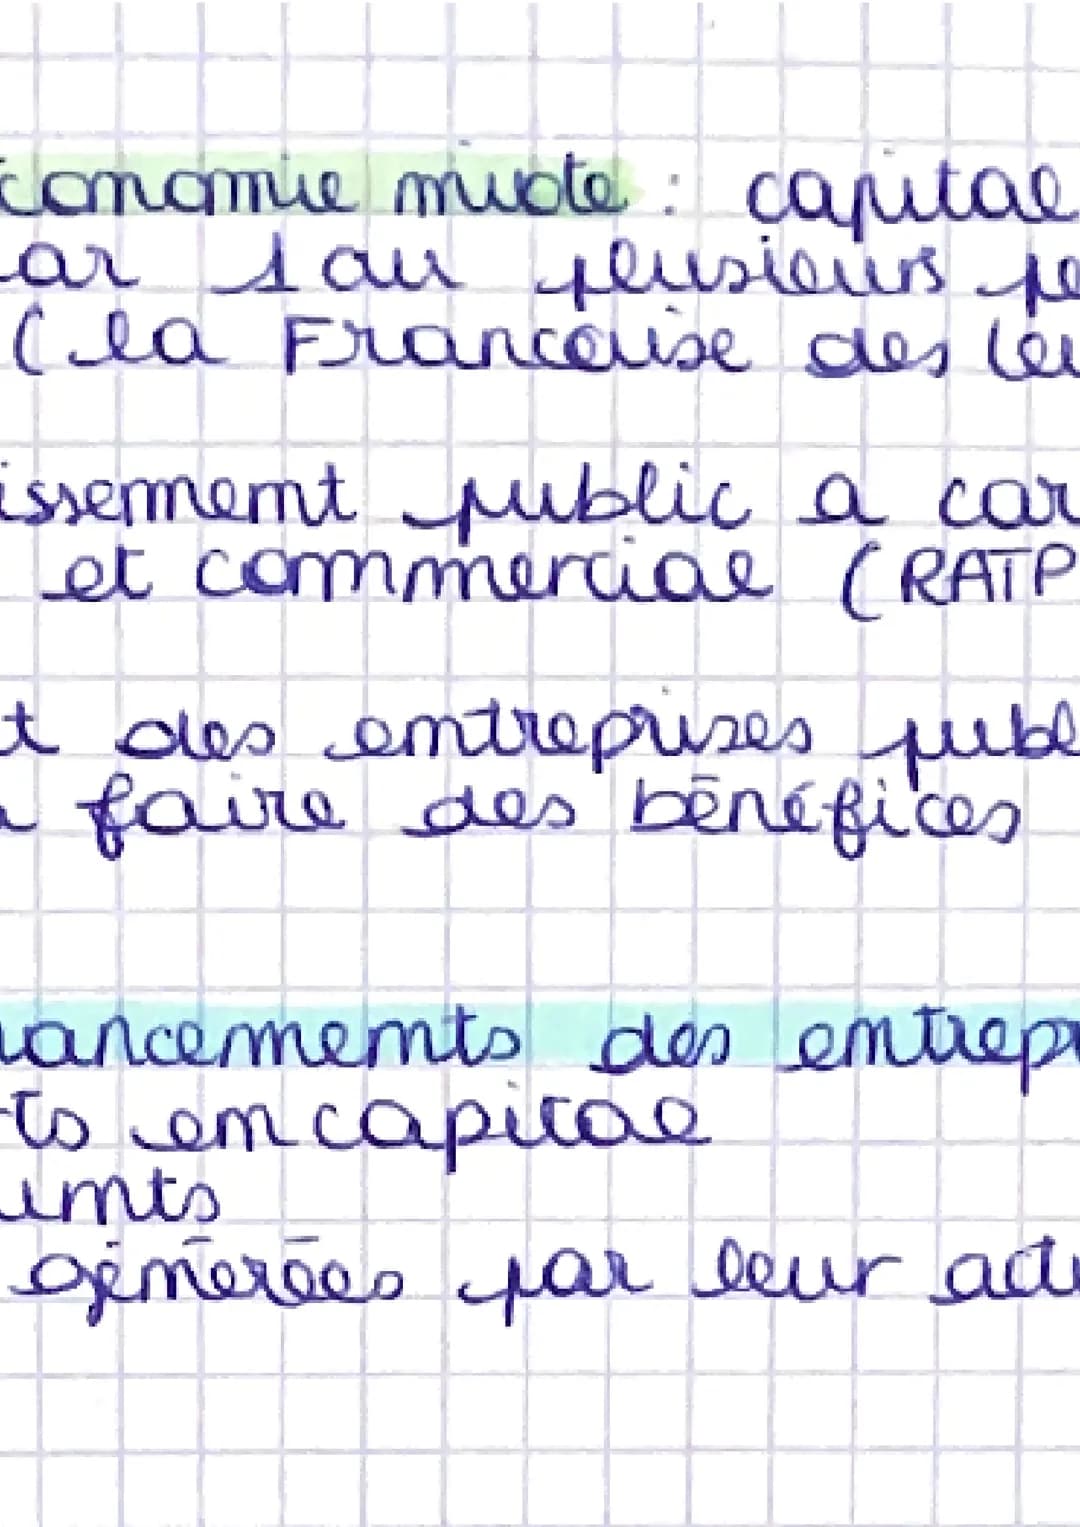 conomie mixte : capital
ar 1 ou plusieurs pe
( la Francaise des Jeu
issement public a car
et commercial (RATP
t des entreprises publ
a faire des bénéfices
nancements des entrepr
ts en capital
unts
générées par leur acti